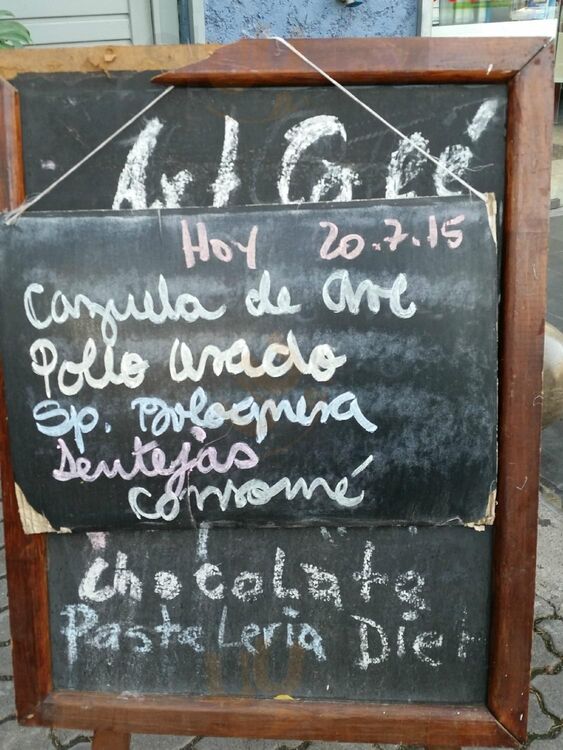 Art Café
Hoy 20.7.15
Cazuela de Ave
Pollo asado
Sp. Bolognesa
Lentejas
Consomé
Chocolate
PasteLeria Diet